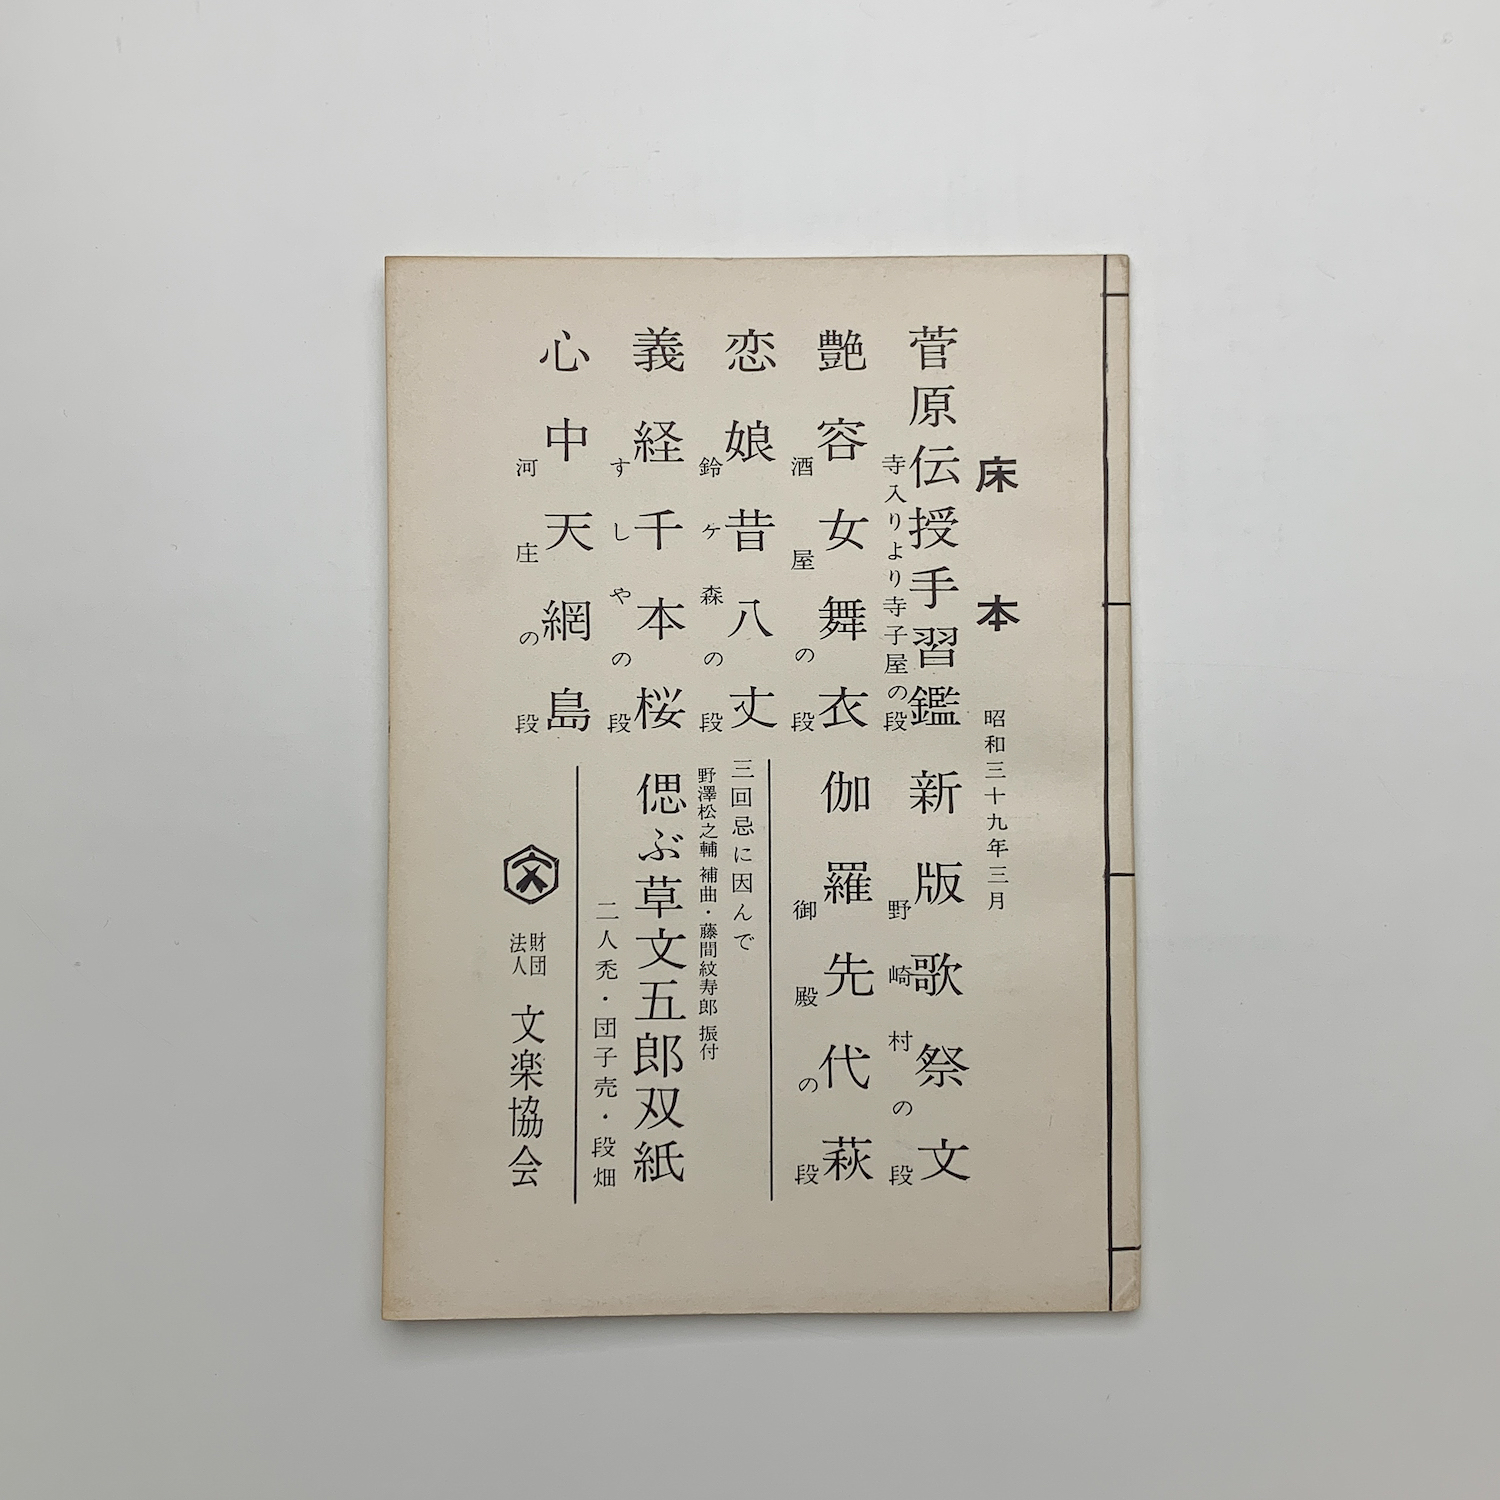 床本
昭和三十九年三月
菅原伝授手習鑑
寺入りより寺子屋の段
艶容女舞衣
酒屋の段
恋娘昔八丈
鈴ヶ森の段
義経千本桜
すしやの段
心中天網島
河庄の段
新版歌祭文
野崎村の段
伽羅先代萩
御殿の段
三回忌に因んで
野澤松之輔 補曲・藤間紋寿郎 振付
偲ぶ草文五郎双紙
二人禿・団子売・段畑
文
財団法人 文楽協会